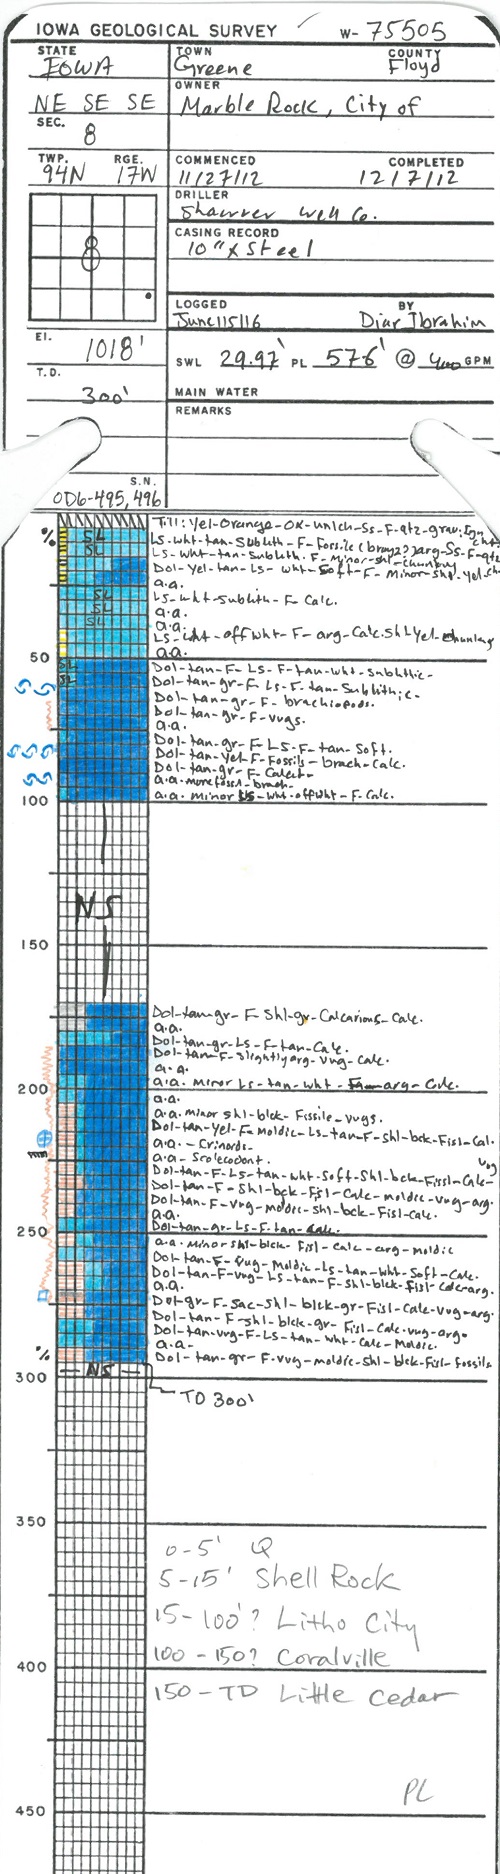 IOWA GEOLOGICAL SURVEY W- 75505
STATE TOWN COUNTY
IOWA Greene Floyd
OWNER
NE SE SE Marble Rock, City of
SEC.
8
TWP. RGE. COMMENCED COMPLETED
94N 17W 11/27/12 12/7/12
DRILLER
Shawver Well Co.
CASING RECORD
10" x Steel
8
LOGGED BY
June/15/16 Diar Ibrahim
El.
1018' SWL 29.97' PL 57.6' @ 400 GPM
T.D.
300' MAIN WATER
REMARKS
S.N.
OD6-495,496
% Till: Yel-Orange-ox-unlch-Ss-F-qtz-grav: Ign
SL Ls-wht-tan-Sublith-F-Fossils (bryoz?) arg-Ss-F-qtz
SL Ls-wht-tan-sublith. F-Minor-shl-chunky
Dol-yel-tan-Ls-wht-Soft-F-Minor-shl-yel-ch
a.a.
SL Ls-wht-sublith-F Calc.
SL a.a.
SL a.a.
Ls-wht-offwht-F-arg-Calc. shl yel-chunky
50 a.a.
SL Dol-tan-F-Ls-F-tan-wht-sublithic-
SL Dol-tan-gr-F-Ls-F-tan-Sublithic-
Dol-tan-gr-F-brachiopods.
Dol-tan-gr-F-vugs.
a.a.
Dol-tan-gr-F-LS-F-tan Soft.
Dol-tan-yel-F-Fossils-brach-Calc.
Dol-tan-gr-F-Calcet-
a.a. more fossil-brach-
100 a.a. Minor Ls-wht-offwht-F-Calc.
NS
150
Dol-tan-gr-F-Shl-gr-Calcarious-Calc.
a.a.
Dol-tan-gr-Ls-F-tan-Calc.
Dol-tan-F-slightly arg-vug-Calc.
a.a.
200 a.a. Minor Ls-tan-wht-F-arg-Calc.
a.a.
a.a. minor shl-blck-Fissile-vugs.
Dol-tan-yel-F-Moldic-Ls-tan-F-shl-bck-Fissl-Cal.
a.a.-Crinoids- vug
a.a-Scolecodont.
Dol-tan-F-Ls-tan-wht-Soft-Shl-bck-Fissl-Calc-
Dol-tan-F-Shl-bck-Fisl-Calc-moldic-vug-arg.
Dol-tan-F-vug-moldic-shl-bck-Fisl-Calc.
a.a.
250 Dol-tan-gr-Ls-F-tan-Calc.
a.a. Minor-shl-blck-Fisl-Calc-arg-moldic
Dol-tan-F-vug-Moldic-Ls-tan-wht-Soft-Calc.
Dol-tan-F-vug-Ls-tan-F-shl-blck-Fisl Calc-arg.
a.a.
Dol-gr-F-sac-shl-blck-gr-Fisl-Calc-vug-arg.
Dol-tan-F-shl-blck-gr-Fisl-Calc-vug-arg-
Dol-tan-vug-F-Ls-tan-wht-Calc-Moldic.
a.a-
% Dol-tan-gr-F-vug-moldic-shl-bck-Fisl-fossils
300 NS
TD 300'
350
0-5' Q
5-15' Shell Rock
15-100'? Litho City
100-150? Coralville
400
150-TD Little Cedar
PL
450